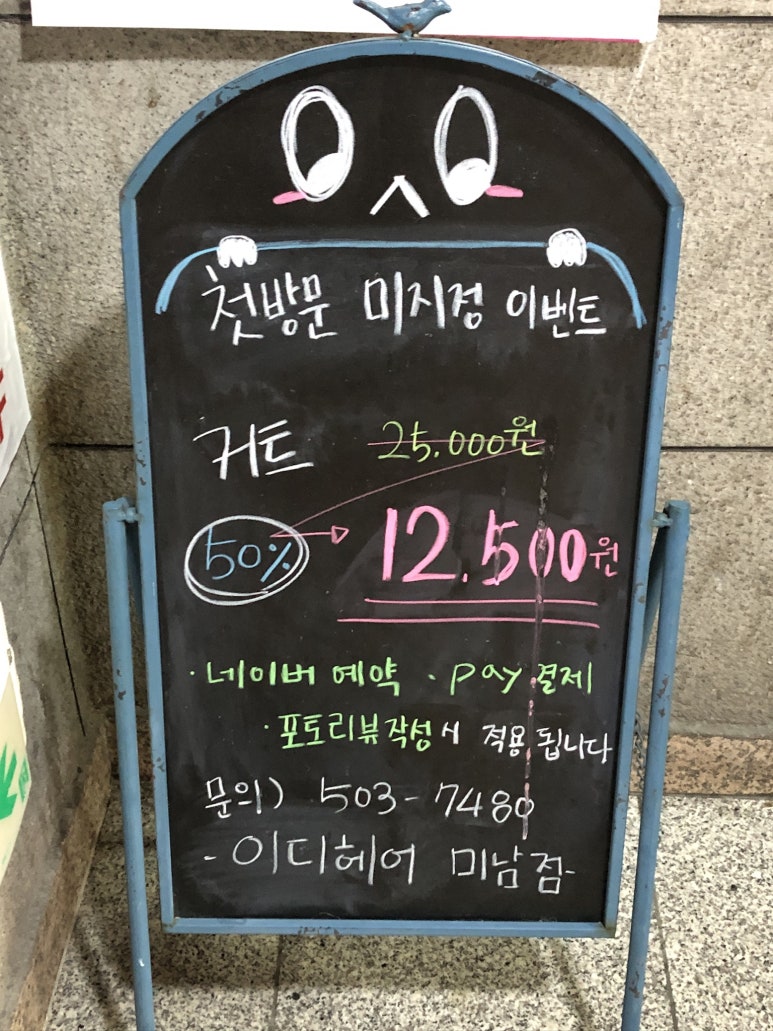 첫방문 미지정 이벤트
커트 25.000원
50% → 12.500원
· 네이버 예약 · pay 결제
· 포토리뷰작성시 적용 됩니다
문의) 503-7480
- 이디헤어 미남점-